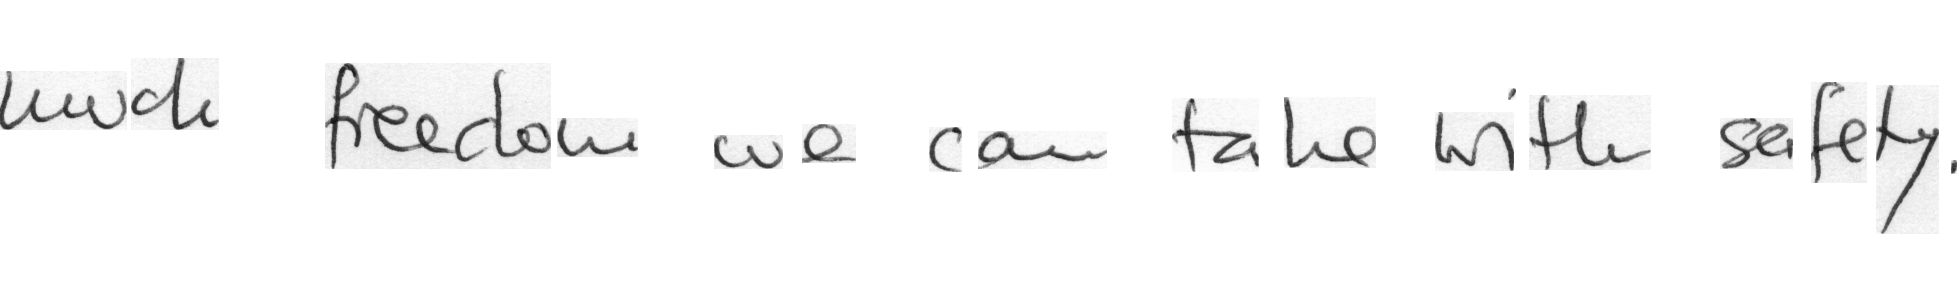 much freedom we can take with safety.